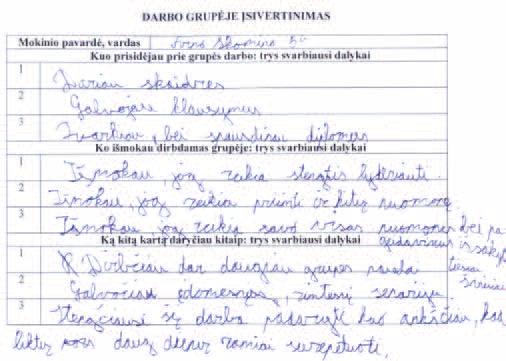 DARBO GRUPĖJE ĮSIVERTINIMAS
Mokinio pavardė, vardas
Kuo prisidėjau prie grupės darbo: trys svarbiausi dalykai
1 Dariau skaidres
2 Galvojau klausymus
3 Tvarkiau, bei spausdinau diplomus
Ko išmokau dirbdamas grupėje: trys svarbiausi dalykai
1 Išmokau, jog reikia stengtis lyderiauti.
2 Išmokau, jog reikia priimti ir kitų nuomonę.
3 Išmokau, jog reikia savo visas nuomones bei pa
geidavimus išsakyti
Ką kitą kartą daryčiau kitaip: trys svarbiausi dalykai
1 Dirbčiau dar daugiau grupės
2 Galvočiau įdomesnį
3 Stengčiausi šį darbą padaryti kuo anksčiau, kad
liktų daug dienų ramiai